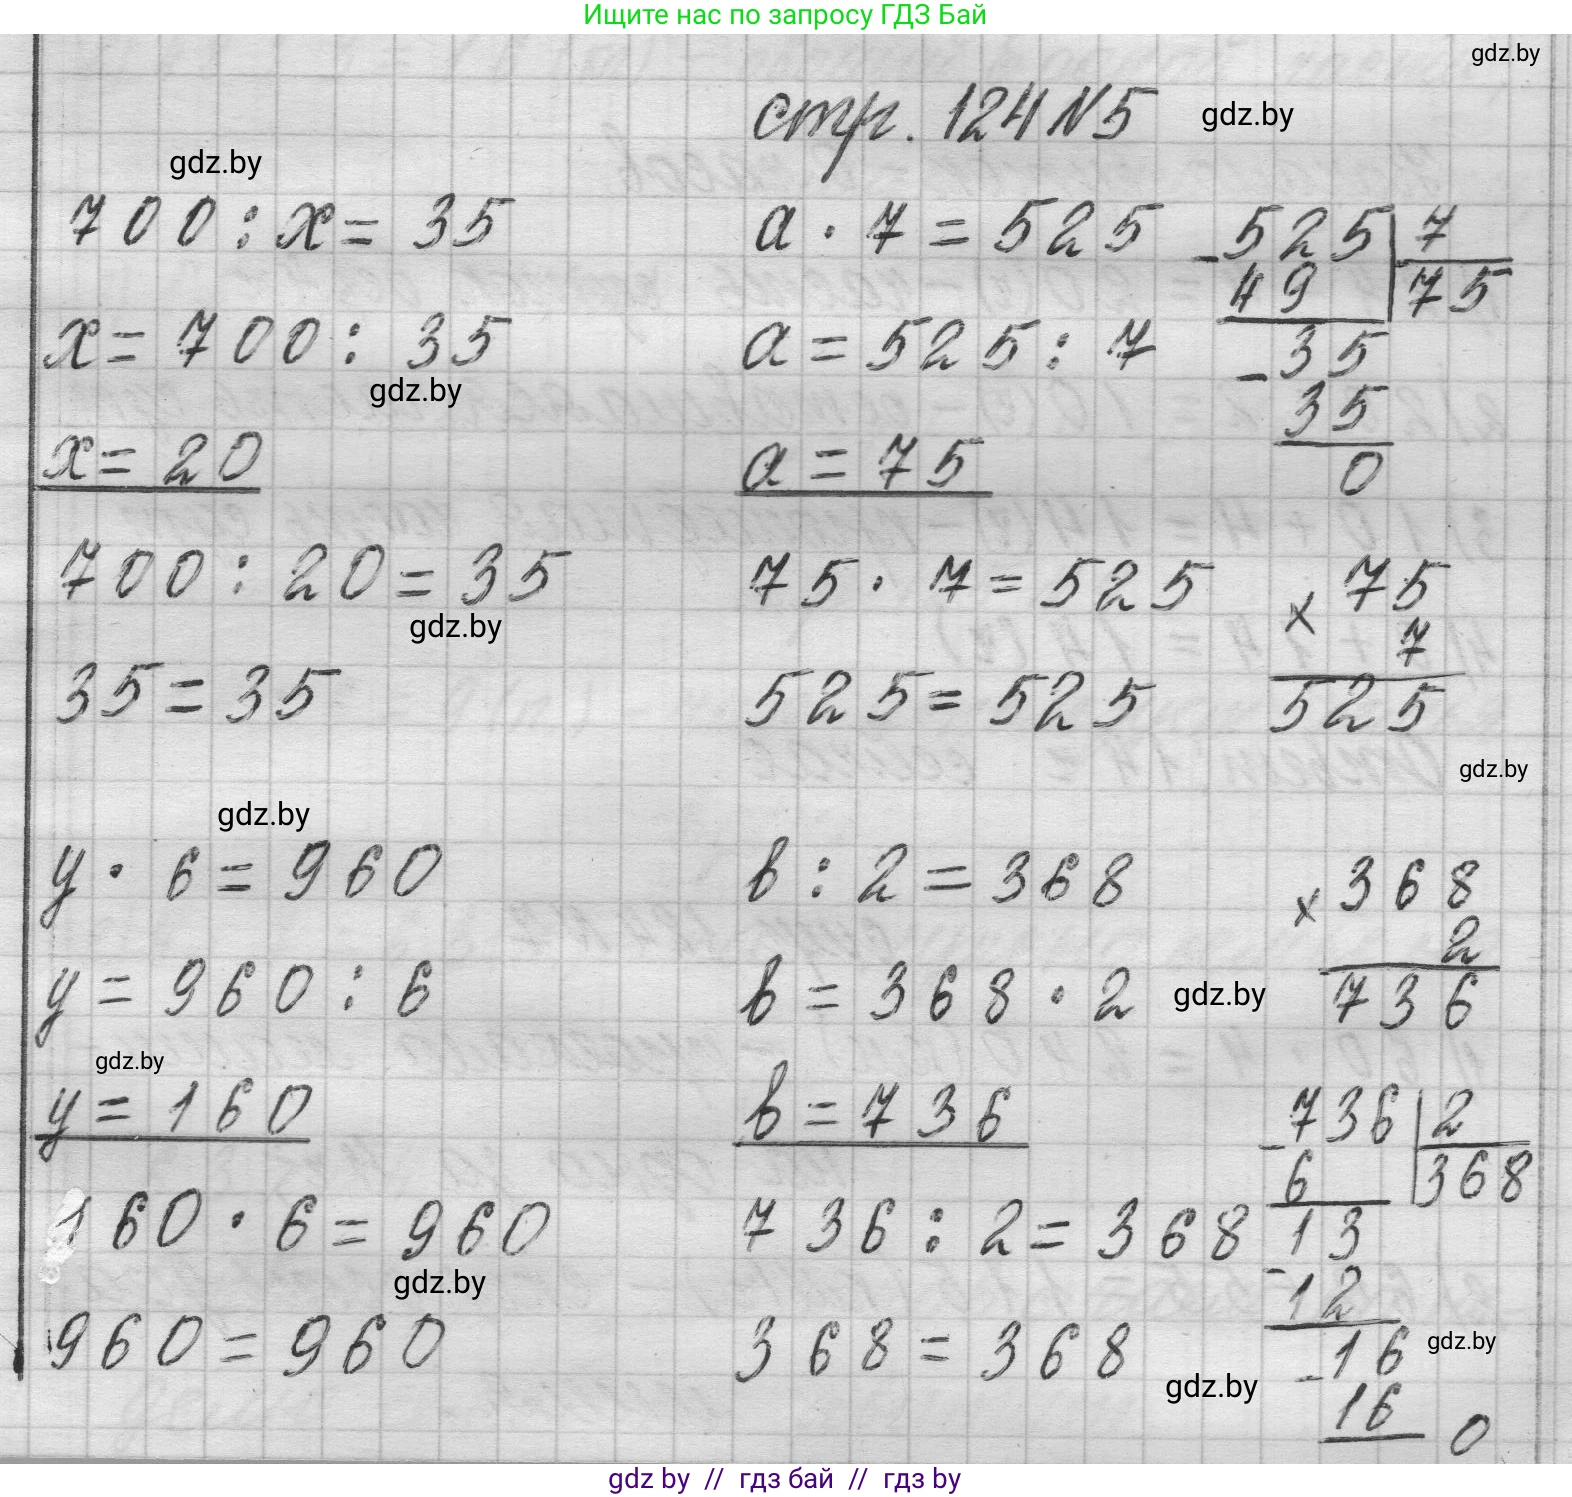 Ищите нас по запросу ГДЗ Бай
gdz.by
стр. 124 N5
gdz.by
gdz.by
700 : x = 35
x = 700 : 35
gdz.by
x = 20
700 : 20 = 35
gdz.by
35 = 35
a · 7 = 525
a = 525 : 7
a = 75
75 · 7 = 525
525 = 525
- 525 | 7
49 | 75
- 35
35
0
x 75
7
525
gdz.by
gdz.by
y · 6 = 960
y = 960 : 6
gdz.by
y = 160
160 · 6 = 960
gdz.by
960 = 960
в : 2 = 368
в = 368 · 2
gdz.by
в = 736
736 : 2 = 368
368 = 368
gdz.by
x 368
2
736
- 736 | 2
6 | 368
- 13
12
- 16
gdz.by
16
0
gdz by // гдз бай // гдз by